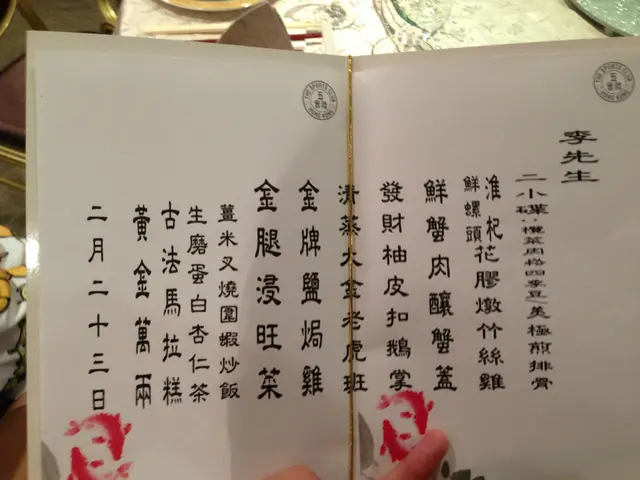 李先生
二小碟：欖菜肉崧四季豆/美極煎排骨
鮮螺頭
淮杞花膠燉竹絲雞
鮮蟹肉釀蟹蓋
發財柚皮扣鵝掌
清蒸大金老虎斑
金牌鹽焗雞
金腿浸旺菜
薑米叉燒圓蝦炒飯
生磨蛋白杏仁茶
古法馬拉糕
黃金萬兩
二月二十三日
THE SPORTS CLUB
HONG KONG
THE SPORTS CLUB
HONG KONG